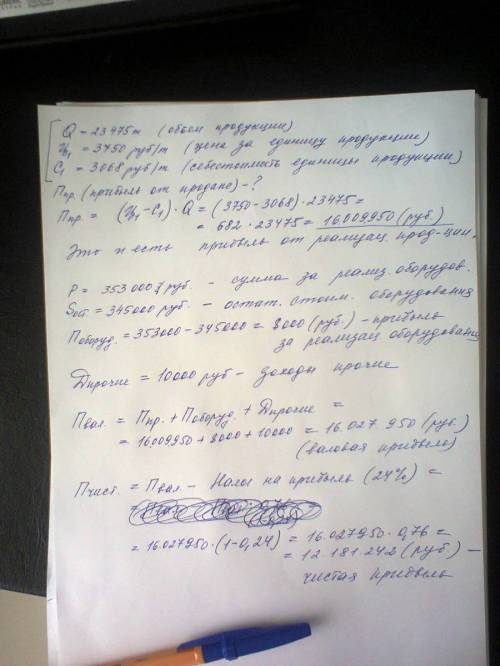 Q = 23475 т (объем продукции)
Ц1 = 3750 руб/т (цена за единицу продукции)
С1 = 3068 руб/т (себестоимость единицы продукции)
Ппр (прибыль от продаж) - ?
Ппр = (Ц1 - С1) · Q = (3750 - 3068) · 23475 =
= 682 · 23475 = 16.009950 (руб.)
Это и есть прибыль от реализац. прод-ции.
P = 353000 руб. - сумма за реализ. оборудов.
Sост = 345000 руб. - остат. стоим. оборудования
Поборуд. = 353000 - 345000 = 8000 (руб.) - прибыль
за реализац оборудования
Дпрочие = 10000 руб - доходы прочие
Пвал. = Ппр. + Поборуд. + Дпрочие =
= 16.009950 + 8000 + 10000 = 16.027 950 (руб.)
(валовая прибыль)
Пчист. = Пвал - Налог на прибыль (24%) =
= 16.027950 · (1-0,24) = 16.027950 · 0,76 =
= 12.181.242 (руб.) -
чистая прибыль